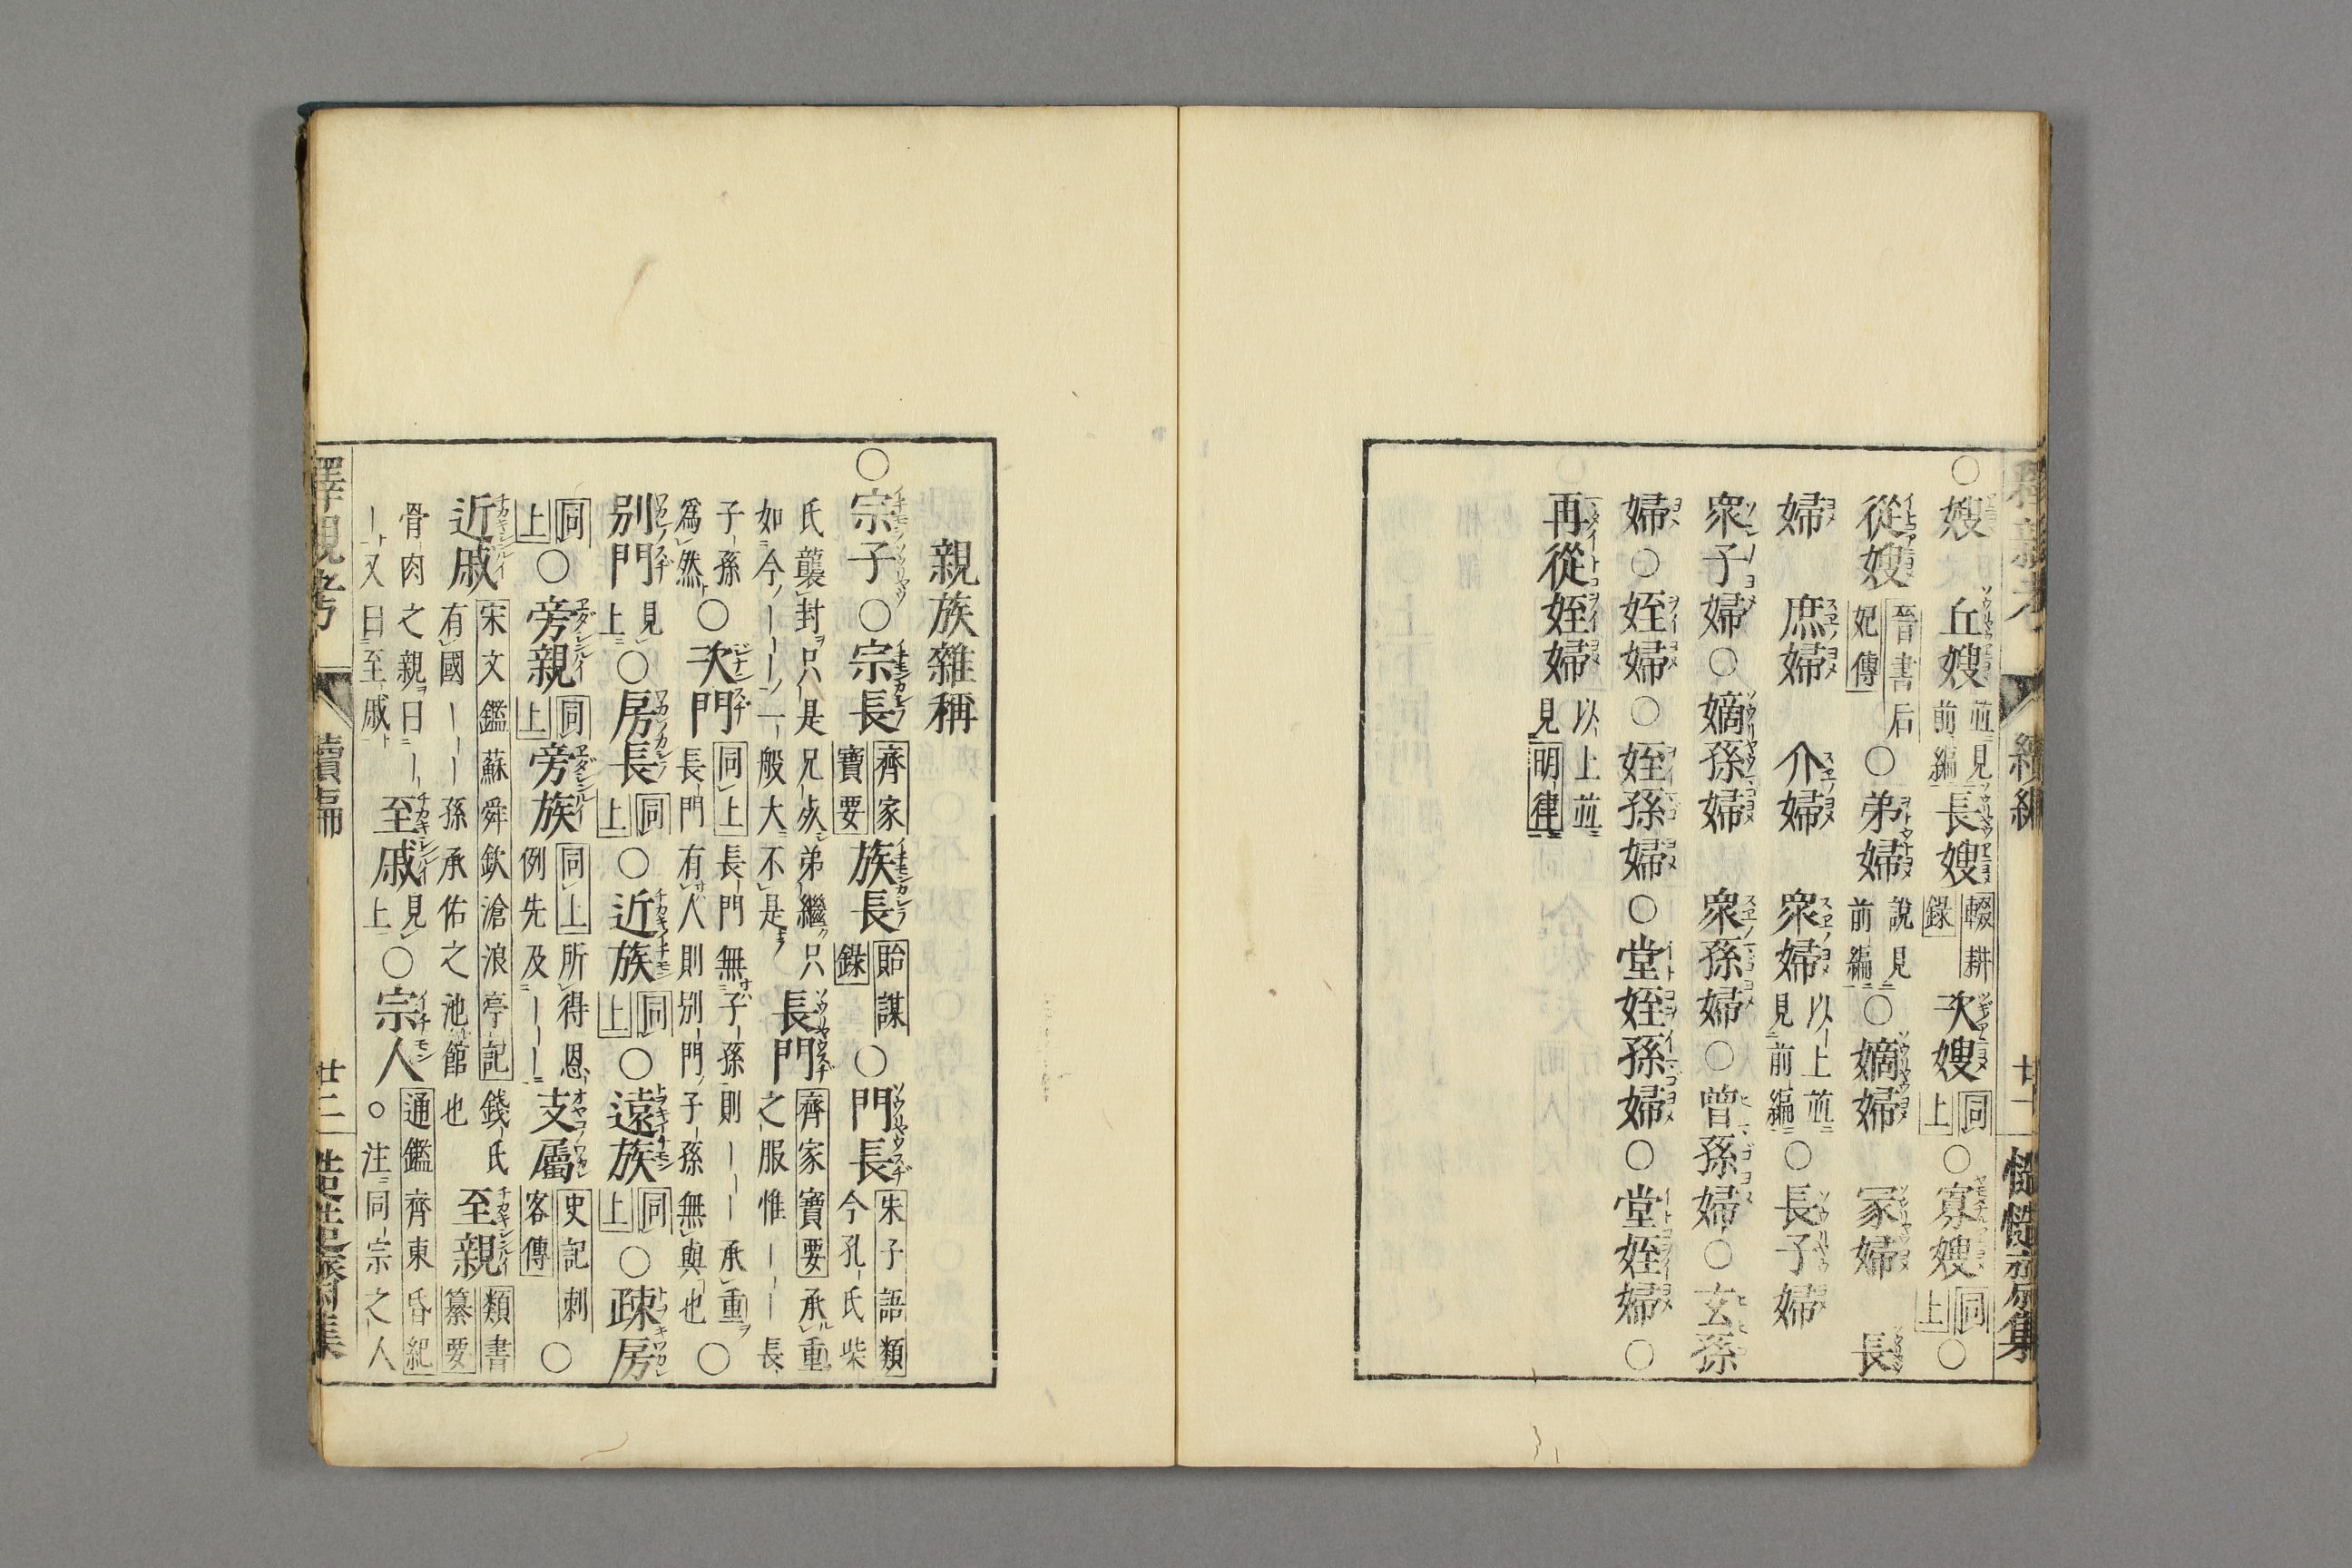 ○嫂 丘嫂 並見前編 長嫂 輟耕錄 次嫂 同上 ○寡嫂 同上 ○
從嫂 晉書后妃傳 ○弟婦 說見前編 ○嫡婦 冢婦 長
婦 庶婦 介婦 衆婦 以上並見前編 ○長子婦
衆子婦 ○嫡孫婦 衆孫婦 ○曾孫婦 ○玄孫
婦 ○姪婦 ○姪孫婦 ○堂姪孫婦 ○堂姪婦 ○
再從姪婦 以上並見明律
親族雜稱
○宗子 ○宗長 齊家寶要 族長 貽謀錄 ○門長 朱子語類 今孔氏柴
氏襲封只是兄死弟繼只如今ーーー一般大不是 長門 齊家寶要 承重之服惟ーー長
子孫為然 ○次門 同上 長門無子孫則ーーー承重長門有人則別門子孫無與也 ○
別門 見上 ○房長 同上 ○近族 同上 ○遠族 同上 ○疎房
同上 ○旁親 同上 旁族 同上 所得恩例先及ーーー 支屬 史記刺客傳 ○
近戚 宋文鑑蘇舜欽滄浪亭記 錢氏有國ーーー孫承佑之池館也 至親 類書纂要
骨肉之親曰ーー又曰至戚 至戚 見上 ○宗人 通鑑齊東昏紀 ○注同宗之人
續編
廿二
釋親考
續編